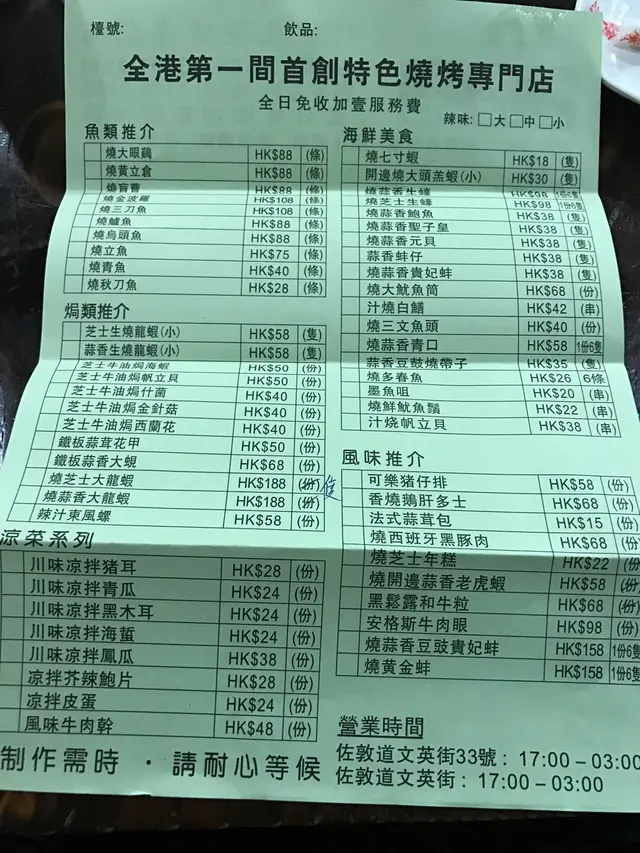 檯號:
飲品:
全港第一間首創特色燒烤專門店
全日免收加壹服務費
辣味: □大 □中 □小
魚類推介
燒大眼鷄 HK$88 (條)
燒黃立倉 HK$88 (條)
燒盲曹 HK$88 (條)
燒金波羅 HK$108 (條)
燒三刀魚 HK$108 (條)
燒鱸魚 HK$88 (條)
燒烏頭魚 HK$88 (條)
燒立魚 HK$75 (條)
燒青魚 HK$40 (條)
燒秋刀魚 HK$28 (條)
焗類推介
芝士生燒龍蝦(小) HK$58 (隻)
蒜香生燒龍蝦(小) HK$58 (隻)
芝士牛油焗海蝦 HK$50 (份)
芝士牛油焗帆立貝 HK$50 (份)
芝士牛油焗什菌 HK$40 (份)
芝士牛油焗金針菇 HK$40 (份)
芝士牛油焗西蘭花 HK$40 (份)
鐵板蒜茸花甲 HK$50 (份)
鐵板蒜香大蜆 HK$68 (份)
燒芝士大龍蝦 HK$188 (份)
燒蒜香大龍蝦 HK$188 (份)
辣汁東風螺 HK$58 (份)
涼菜系列
川味涼拌猪耳 HK$28 (份)
川味涼拌青瓜 HK$24 (份)
川味涼拌黑木耳 HK$24 (份)
川味涼拌海蜇 HK$24 (份)
川味涼拌鳳瓜 HK$38 (份)
涼拌芥辣鮑片 HK$28 (份)
涼拌皮蛋 HK$24 (份)
風味牛肉幹 HK$48 (份)
制作需時 · 請耐心等候
海鮮美食
燒七寸蝦 HK$18 (隻)
開邊燒大頭羔蝦(小) HK$30 (隻)
燒蒜香生蠔 HK$98 1份6隻
燒芝士生蠔 HK$98 1份6隻
燒蒜香鮑魚 HK$38 (隻)
燒蒜香聖子皇 HK$38 (隻)
燒蒜香元貝 HK$38 (隻)
蒜香蚌仔 HK$38 (隻)
燒蒜香貴妃蚌 HK$38 (隻)
燒大魷魚筒 HK$68 (份)
汁燒白鱔 HK$42 (串)
燒三文魚頭 HK$40 (份)
燒蒜香青口 HK$58 1份6隻
蒜香豆鼓燒帶子 HK$35 (隻)
燒多春魚 HK$26 6條
墨魚咀 HK$20 (串)
燒鮮魷魚鬚 HK$22 (串)
汁烧帆立貝 HK$38 (串)
風味推介
可樂豬仔排 HK$58 (份)
香燒鵝肝多士 HK$68 (份)
法式蒜茸包 HK$15 (份)
燒西班牙黑豚肉 HK$68 (份)
燒芝士年糕 HK$22 (份)
燒開邊蒜香老虎蝦 HK$58 (份)
黑鬆露和牛粒 HK$68 (份)
安格斯牛肉眼 HK$98 (份)
燒蒜香豆豉貴妃蚌 HK$158 1份6隻
燒黃金蚌 HK$158 1份6隻
營業時間
佐敦道文英街33號 : 17:00 – 03:00
佐敦道文英街 : 17:00 – 03:00